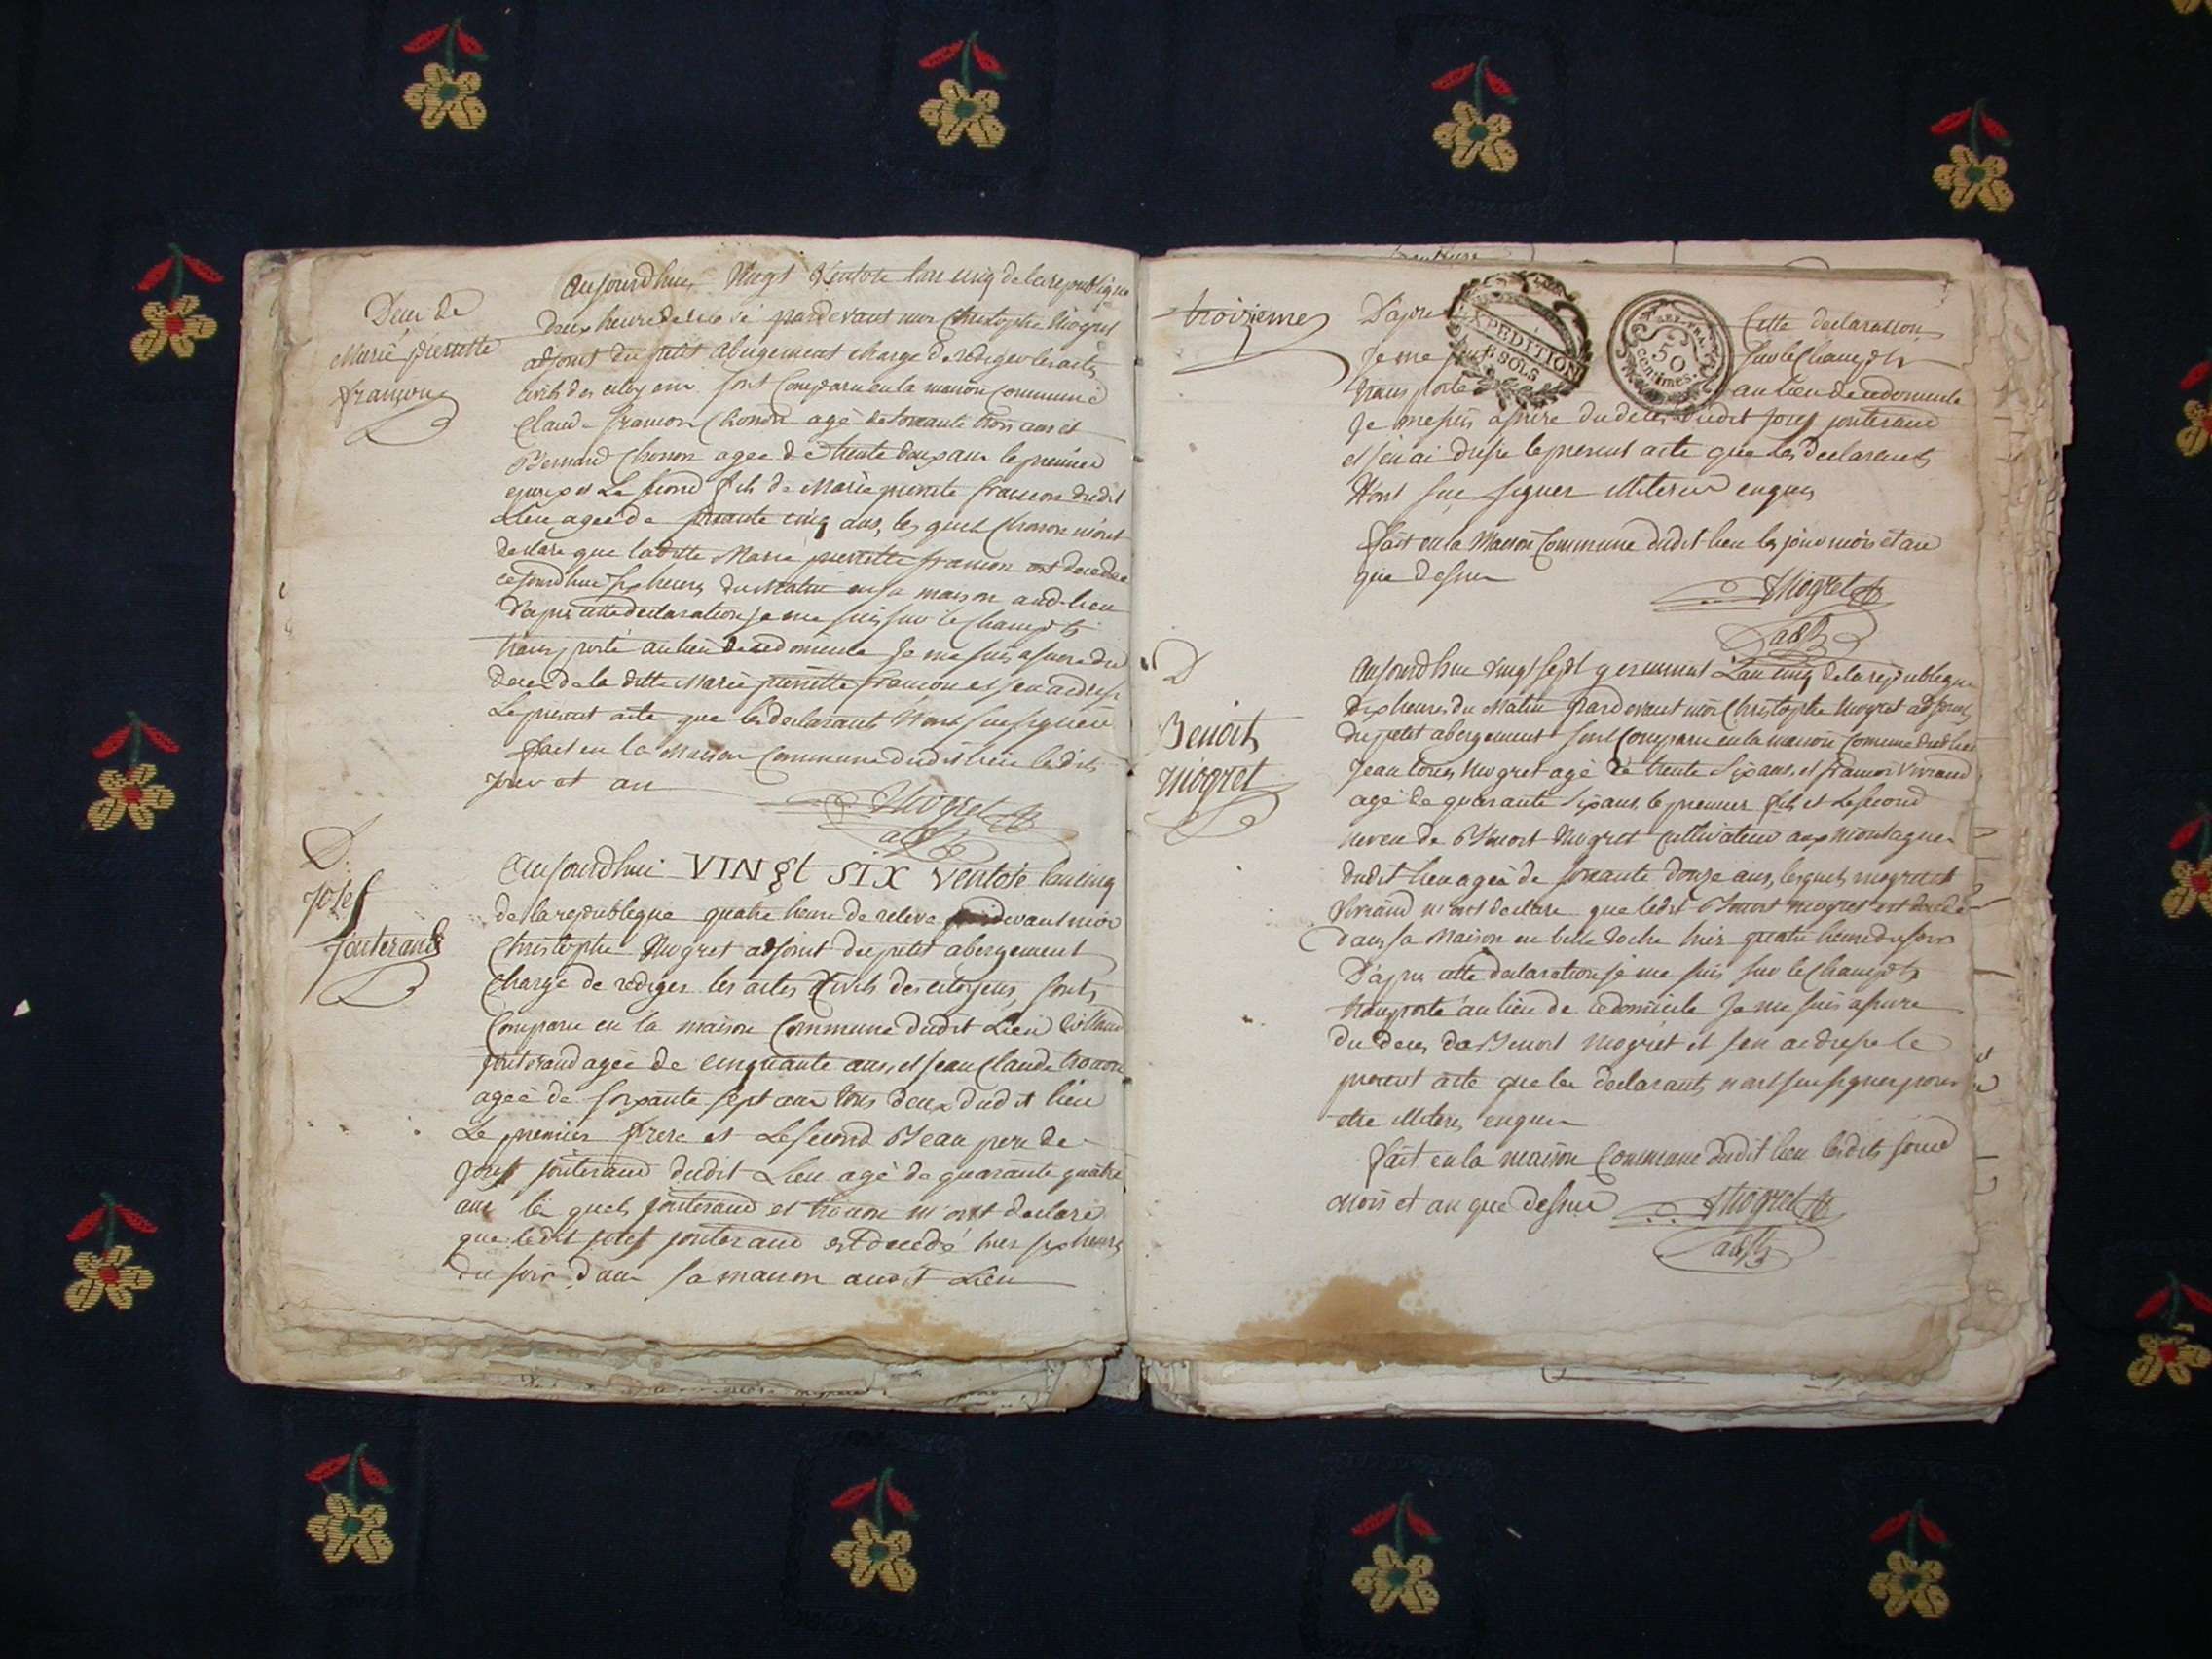 Deces de
Marie pierrette
françon
Aujourdhui Vingt Ventose lan cinq de la republique
Deux heure de releve pardevant moi Christophe Mogret
adjoint du petit abergement charge de rediger les acts
Civils des citoyens sont Comparu en la maison Commune
Claude françon Chonon agé de soixante trois ans et
Bernard Chonon agee de trente deux ans le premier
epoux et Le second fils de Marie pierrette françon dudit
Lieu ageé de soixante cinq ans, les quels Chonon m'ont
declare que laditte Marie pierrette françon est decedee
cejourdhui six heures du Matin en sa maison aud. lieu
D'apres cette declaration je me suis sur le Champts
transporté au lieu de ce domicile Je me suis assure du
deces de la ditte Marie pierrette françon et jen ai dresse
Le present acte que les declarants N'ont sue signer
fait en la Maison Commune dudit lieu lesdits
jour et an
Mogret
adjt
D.
Josef
jouterand
Aujourdhui VINgt SIX Ventose lan cinq
de la republique quatre heure de releve pardevant moi
Christophe Mogret adjoint du petit abergement
Charge de rediger les actes Civils des citoyens, sonts
Comparu en la maison Commune dudit Lieu
jouterand ageé de cinquante ans, et jean Claude
ageé de soixante sept ans tous deux dudit lieu
Le premier frere et Le second Beau pere de
Josef jouterand dudit Lieu agé de quarante quatre
ans les quels jouterand et m'ont declaré
que ledit josef jouterand est decedé hier six heures
du soir dans sa maison audit Lieu
troizieme
D'apre Cette declaration
Je me suis sur le Champts
transporte au lieu de ce domicile
EXPEDITION
SOLS
50
centimes.
Je me suis assure du deces dudit Josef jouterand
et j'en ai dresse le present acte que Les declarants
N'ont sue signer enquis
fait en la Maison Commune dudit lieu les jour mois et an
que dessus
Mogret
adjt
D
Benoit
mogret
Aujourdhui vingt sept germinal L'an cinq de la republique
dix heures du Matin pardevant moi Christophe Mogret adjoint
du petit abergement sont Comparu en la maison Comune dud. lieu
Jean Louis Mogret agé de trente six ans, et françois Vivrand
agé de quarante six ans, le premier fils et Le second
neveu de Benoit Mogret Cultivateur aux montagnes
dudit lieu ageé de soixante douze ans, lesquels mogret et
Vivrand m'ont declare que ledit Benoit mogret est decedé
dans sa Maison en belle roche hier quatre heure du soir
D'apres cette declaration je me suis sur le Champts
transporté au lieu de ce domicile Je me suis assure
du deces de Benoit Mogret et j'en ai dresse le
present acte que les declarants n'ont sue signer pour
etre illiteres enquis
fait en la maison Commune dudit lieu lesdits jour
mois et an que dessus
Mogret
adjt